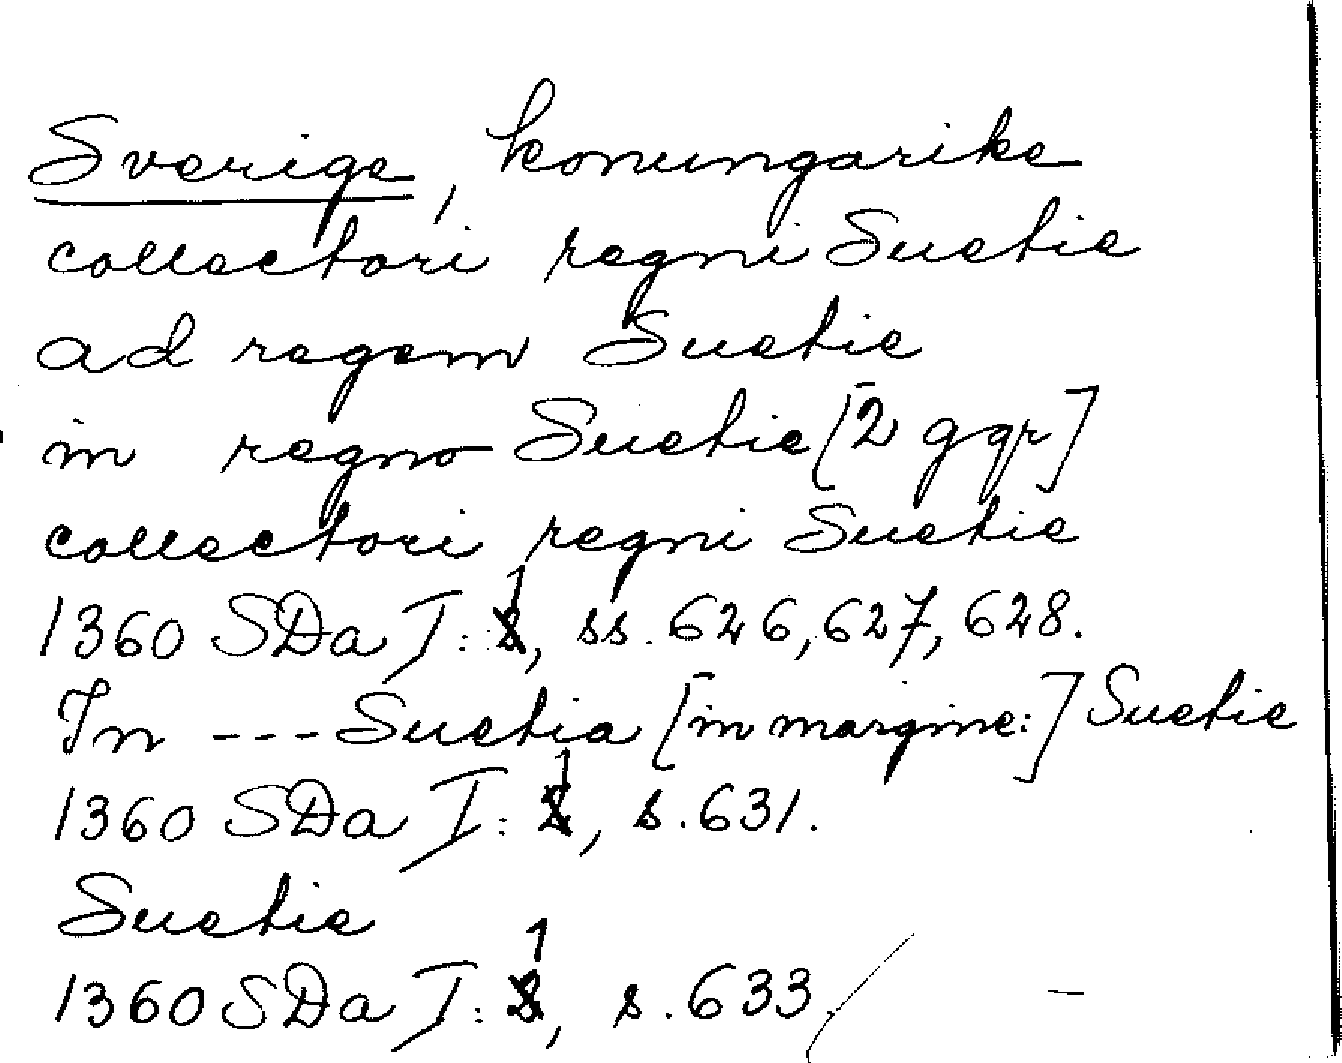 Sverige, konungarike
collectori regni Suetie
ad regem Suetie
in regno Suetie [2 ggr]
collectori regni Suetie
1360 SDa I: 1, ss. 626, 627, 628.
In --- Suetia [in margine:] Suetie
1360 SDa I: 1, s. 631.
Suetie
1360 SDa I: 1, s. 633.